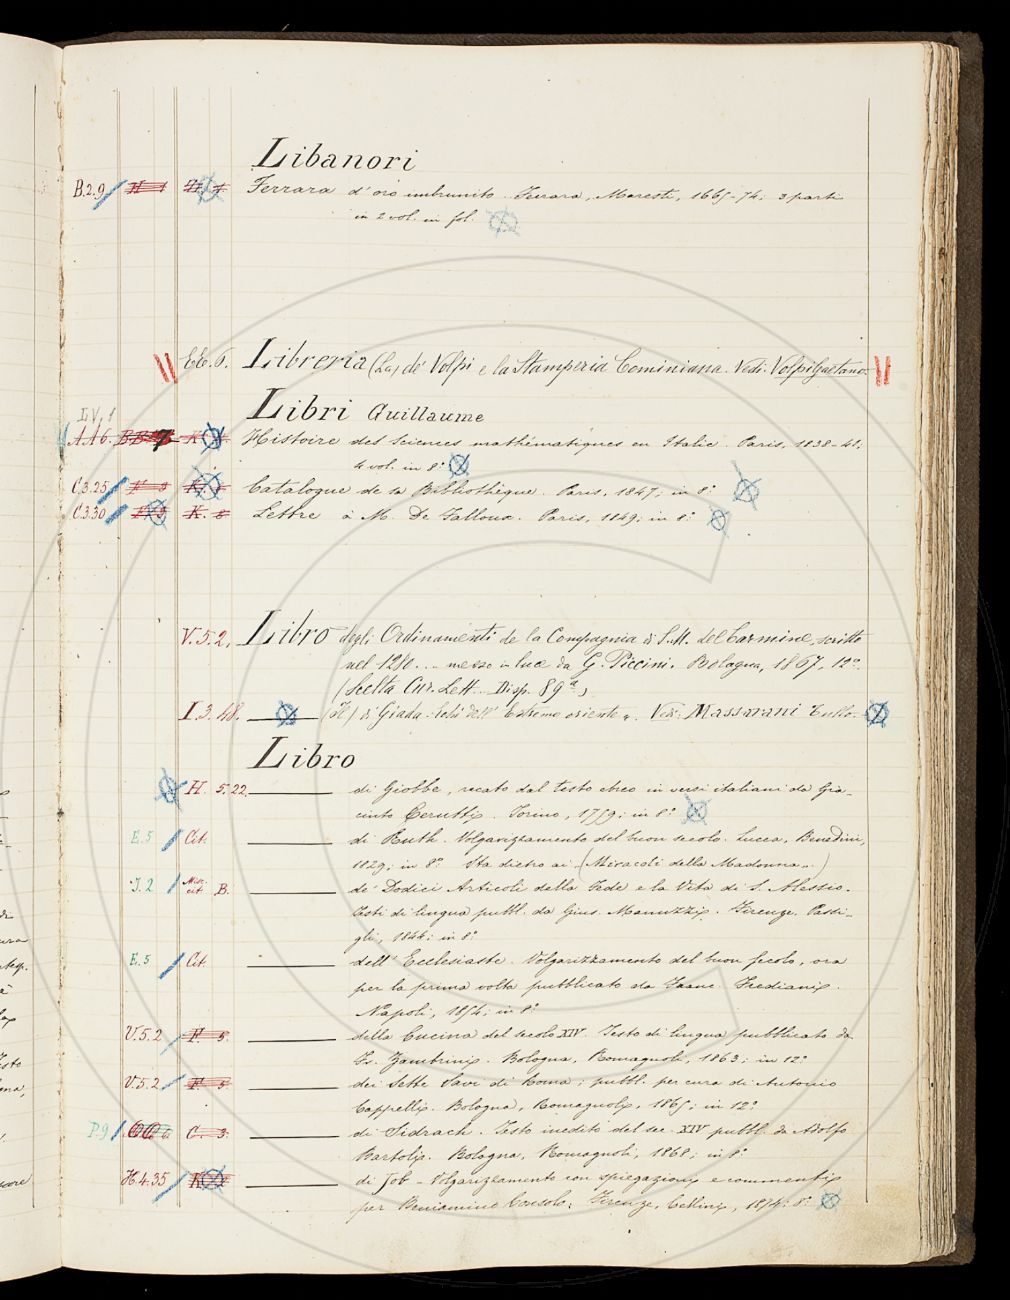 Libanori
B.2.9 Ferrara d'oro imbrunito. Ferrara, Maresti, 1665-74; 3 parti
in 2 vol. in fol.
EE.6. Libreria (La) de' Volpi e la Stamperia Cominiana. Vedi: Volpi Gaetano
Libri Guillaume
LV, 1
AA6. BB 7 Histoire des sciences mathématiques en Italie. Paris, 1838-41,
4 vol. in 8°
C.3.25 Catalogue de sa Bibliothèque. Paris, 1847; in 8°
C.3.30 K. 8 Lettre à M. De Falloux. Paris, 1849; in 8°
V.5.2. Libro degli Ordinamenti de la Compagnia di S. M. del Carmine, scritto
nel 1280... messo in luce da G. Piccini. Bologna, 1867, 12°
(Scelta Cur. Lett. Disp. 89ª)
I.3.48. (Il) di Giada: echi dell' Estremo oriente". Vedi: Massarani Tullo
Libro
H. 5.22. di Giobbe, recato dal testo ebreo in versi italiani da Gia-
cinto Ceruttj. Torino, 1759; in 8°
E.5 Cit. di Ruth. Volgarizzamento del buon secolo. Lucca, Benedini,
1829; in 8° Sta dietro ai (Miracoli della Madonna".)
J.2 Misc. cit. B. de' Dodici Articoli della Fede e la Vita di S. Alessio.
Testi di lingua pubbl. da Gius. Manuzzj. Firenze, Passi-
gli, 1846; in 8°
E.5 Cit. dell' Ecclesiaste. Volgarizzamento del buon secolo, ora
per la prima volta pubblicato da Franc. Fredianj.
Napoli, 1854; in 8°
V.5.2 F 5. della Cucina del secolo XIV. Testo di lingua pubblicato da
Fr. Zambrinj. Bologna, Romagnoli, 1863; in 12°
V.5.2 F 5 dei Sette Savi di Roma; pubbl. per cura di Antonio
Cappellj. Bologna, Romagnolj, 1865; in 12°
P.9 C. 3. di Sidrach. Testo inedito del sec. XIV pubbl. da Adolfo
Bartolj. Bologna, Romagnoli, 1868; in 8°
H.4.35 di Job - Volgarizzamento con spiegazionj e commentij
per Beniamino Consolo; Firenze, Cellinj, 1874; 8°